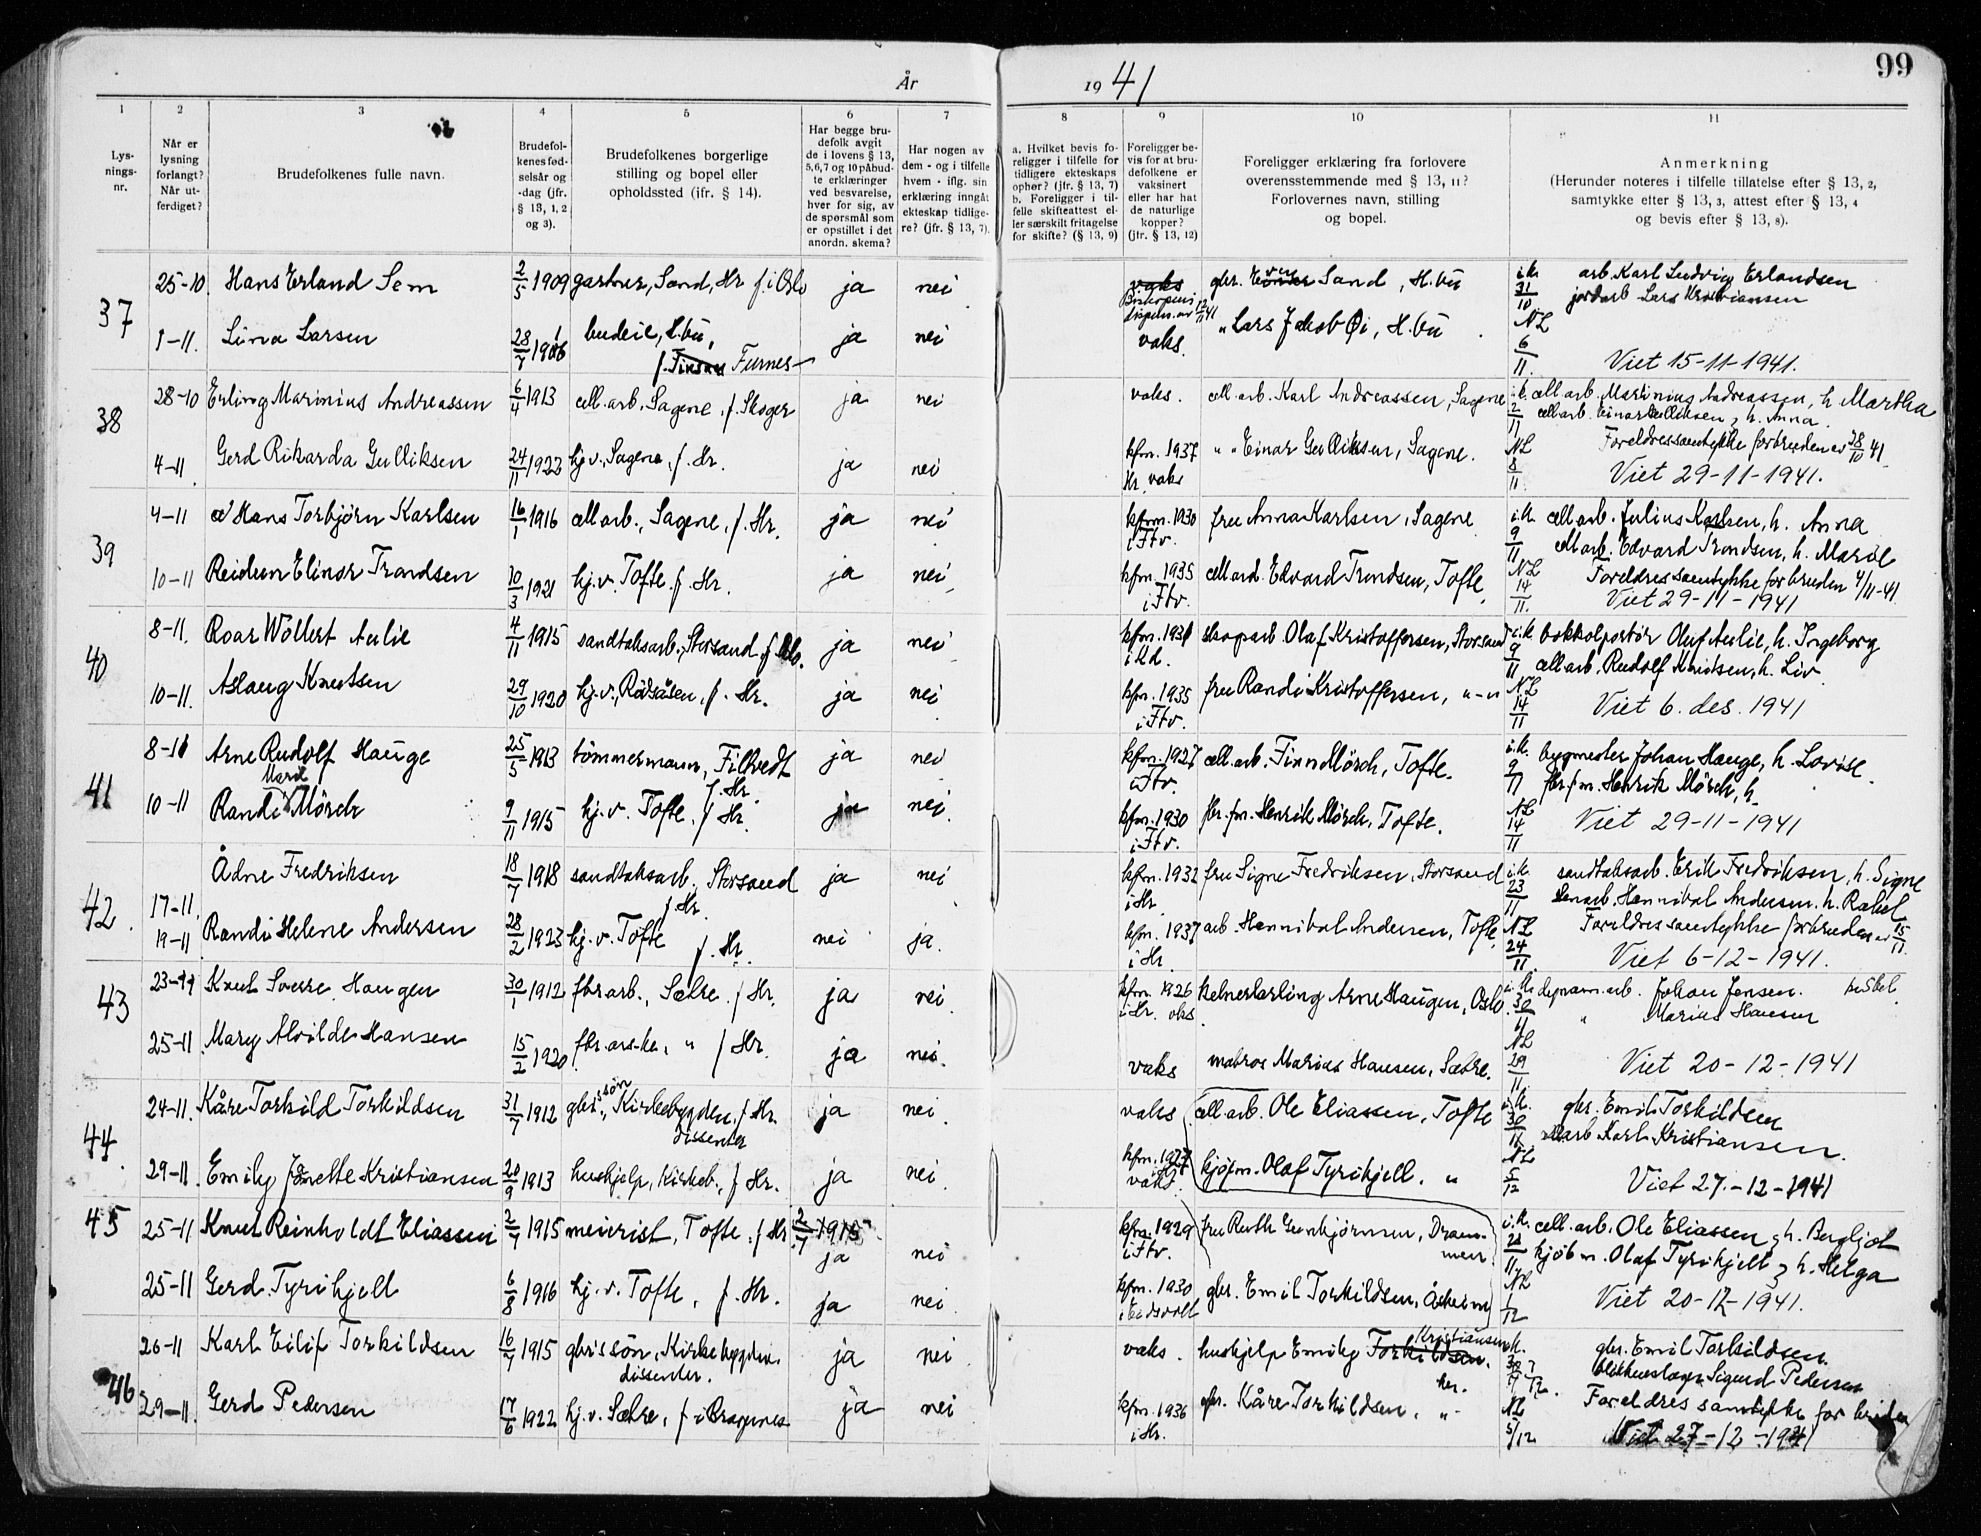 99
År 1941
1 2 3 4 5 6 7 8 9 10 11
Lys-
nings-
nr.
Når er
lysning
forlangt?
Når ut-
ferdiget?
Brudefolkenes fulle navn.
Brudefol-
kenes fød-
selsår og
-dag (jfr.
§ 13, 1, 2
og 3).
Brudefolkenes borgerlige
stilling og bopel eller
opholdssted (ifr. § 14).
Har begge bru-
defolk avgit
de i lovens § 13,
5,6,7 og 10 påbud-
te erklæringer
ved besvarelse,
hver for sig, av
de spørsmål som
er opstillet i det
anordn. skema?
Har nogen av
dem - og i tilfelle
hvem - iflg. sin
erklæring inngåt
ekteskap tidlige-
re? (jfr. § 13, 7).
a. Hvilket bevis fo-
religger i tilfelle for
tidligere ekteskaps
ophør? (jfr. § 13, 7)
b. Foreligger i til-
felle skifteattest el-
ler særskilt fritagelse
for skifte? (§ 13, 9)
Foreligger be-
vis for at bru-
defolkene er
vaksinert
eller har hat
de naturlige
kopper?
(jfr. § 13, 12)
Foreligger erklæring fra forlovere
overensstemmende med § 13, 11?
Forlovernes navn, stilling
og bopel.
Anmerkning
(Herunder noteres i tilfelle tillatelse efter § 13, 2,
samtykke efter § 13, 3, attest efter § 13, 4
og bevis efter § 13, 8).
37 25-10 Hans Erland Sem 2/5 1909 gartner, Sand, Hr f. i Oslo ja nei vaks gbr. Sand, H.bu i.k. 31/10 arb. Karl Ludvig Erlandsen
jordarb Lars Kristiansen
Biskopens dispens. av 12/11 41
1-11. Lina Larsen 28/7 1906 budeie, H.bu, f. Furnes ja nei vaks. " Lars Jakob Øi, H.bu NL 6/11. Viet 15-11-1941.
38 28-10 Erling Marinius Andreassen 6/4 1913 cell. arb. Sagene, f. Skoger ja nei vaks. cell. arb. Karl Andreassen, Sagene i.k. 2/11 cell arb. Martinius Andreassen, h. Martha
cell arb. Einar Gulliksen, h. Anna.
4-11 Gerd Rikarda Gulliksen 24/11 1923 hj.v., Sagene, f. Hr. ja nei kfm. 1937 Hr. vaks " " Einar Gulliksen, Sagene. NL 8/11. Foreldresamtykke for bruden av 28/10 41.
Viet 29-11-1941.
39 4-11 Hans Torbjørn Karlsen 16/1 1916 cell arb., Sagene, f. Hr. ja nei kfm. 1930 i Ftv. fru Anna Karlsen, Sagene i.k. 9/11 cell arb. Julius Karlsen, h. Anna
cell arb. Edvard Trondsen, h. Marie
10-11 Reidun Elinor Trondsen 30/3 1921 hj.v. Tofte. f. Hr. ja nei kfm. 1935 i Ftv. cell arb. Edvard Trondsen, Tofte NL 14/11. Foreldres samtykke for bruden 4/11-41.
Viet 29-11-1941
40 8-11. Roar Wollert Aulie 4/11 1915 sandtaksarb., Storsand, f. Oslo. ja nei kfm. 1931 i Kd. skogarb Olaf Kristoffersen, Storsand i.k. 9/11 Oluf Aulie, h. Ingeborg
cell arb. Rudolf Knutsen, h. Liv
10-11. Aslaug Knutsen 29/10 1920 hj.v., Rødsåsen, f. Hr. ja nei kfm. 1935 i Ftv. fru Randi Kristoffersen, " - " NL 14/11 Viet 6. des. 1941
41 8-11 Arne Rudolf Hauge 25/5 1913 tømmermann, Filtvedt f. Hr. ja nei kfm. 1927 i Ftv. cell. arb. Finn Mörch, Tofte. i.k. 9/11 bygmester Johan Hauge, h. Lovise.
fbr. fm. Henrik Mörch, h.
10-11 Randi Marie Mörch 9/11 1915 hj.v. Tofte. f. Hr. ja nei kfm. 1930 i Ftv. fbr. fm. Henrik Mörch, Tofte. NL 14/11 Viet 29-11-1941
42. 17-11 Ådne Fredriksen 18/7 1918 sandtaksarb. Storsand f. Hr. ja nei kfm. 1932 i Hr. fru Signe Fredriksen, Storsand i.k. 23/11 sandtaksarb. Erik Fredriksen, h. Signe
Hannibal Andersen, h. Rakel
19-11 Randi Helene Andersen 28/2 1923 hj.v. Tofte f. Hr. nei ja. kfm. 1937 i Hr. arb. Hannibal Andersen, Tofte NL 24/11. Foreldres samtykke for bruden av 15/11.
Viet 6-12-1941.
43 23-11 Knut Sverre Haugen 30/1 1912 fbr arb., Sætre. f. Hr. ja nei kfm. 1926 i Hr. vks. kelnerlærling Arne Haugen, Oslo i.k. 30/11 dynam. arb. Johan Jensen.
" Marius Hansen
25-11 Mary Alvilde Hansen 15/2 1920 fbr. arb-ke, " f. Hr. ja nei vaks matros Marius Hansen, Sætre. NL 29/11. Viet 20-12-1941
44. 24-11. Kåre Torkild Torkildsen 31/7 1912 gbr's sön, Kirkebygden, f. Hr. dissenter ja nei vaks cell. arb. Ole Eliassen, Tofte i.k. 30/11 gbr. Emil Torkildsen
cell arb Karl Kristiansen.
29-11 Emily Jonette Kristiansen 20/9 1913 hushjelp, Kirkeb., f. Hr. ja nei kfm. 1927 vaks. kjøpm. Olaf Tyrihjell. " NL 5/12 Viet 27.-12-1941
45 25-11 Knut Reinholdt Eliassen 2/7 1915 meierist, Tofte. f. Hr 2/7 1915 ja nei kfm. 1929 i Ftv. fru Ruth Drammen i.k. 28/11 cell. arb. Ole Eliassen, h. Bergljot
kjøbm. Olaf Tyrihjell, h. Helga
25-11 Gerd Tyrihjell 6/8 1916 hj.v. Tofte, f. Hr. ja nei. kfm. 1930 i Eidsvoll gbr. Emil Torkildsen, Åsheim NL 1/12 Viet 20-12-1941.
46 26-11 Karl Eilif Torkildsen 16/7 1915 gbr's sön, Kirkebygden. dissenter. ja nei vaks. hushjelp Emily Torkildsen Kristiansen her. i.k. 30/11 gbr. Emil Torkildsen.
blikkenslager Sigurd Pedersen
29-11. Gerd Pedersen 17/6 1922 hj.v. Sætre, f. i Bragernes ja nei kfm. 1936 i Hr. gbr. Kåre Torkildsen, " NL 5/12 Foreldres samtykke for bruden
Viet 27-12-1941